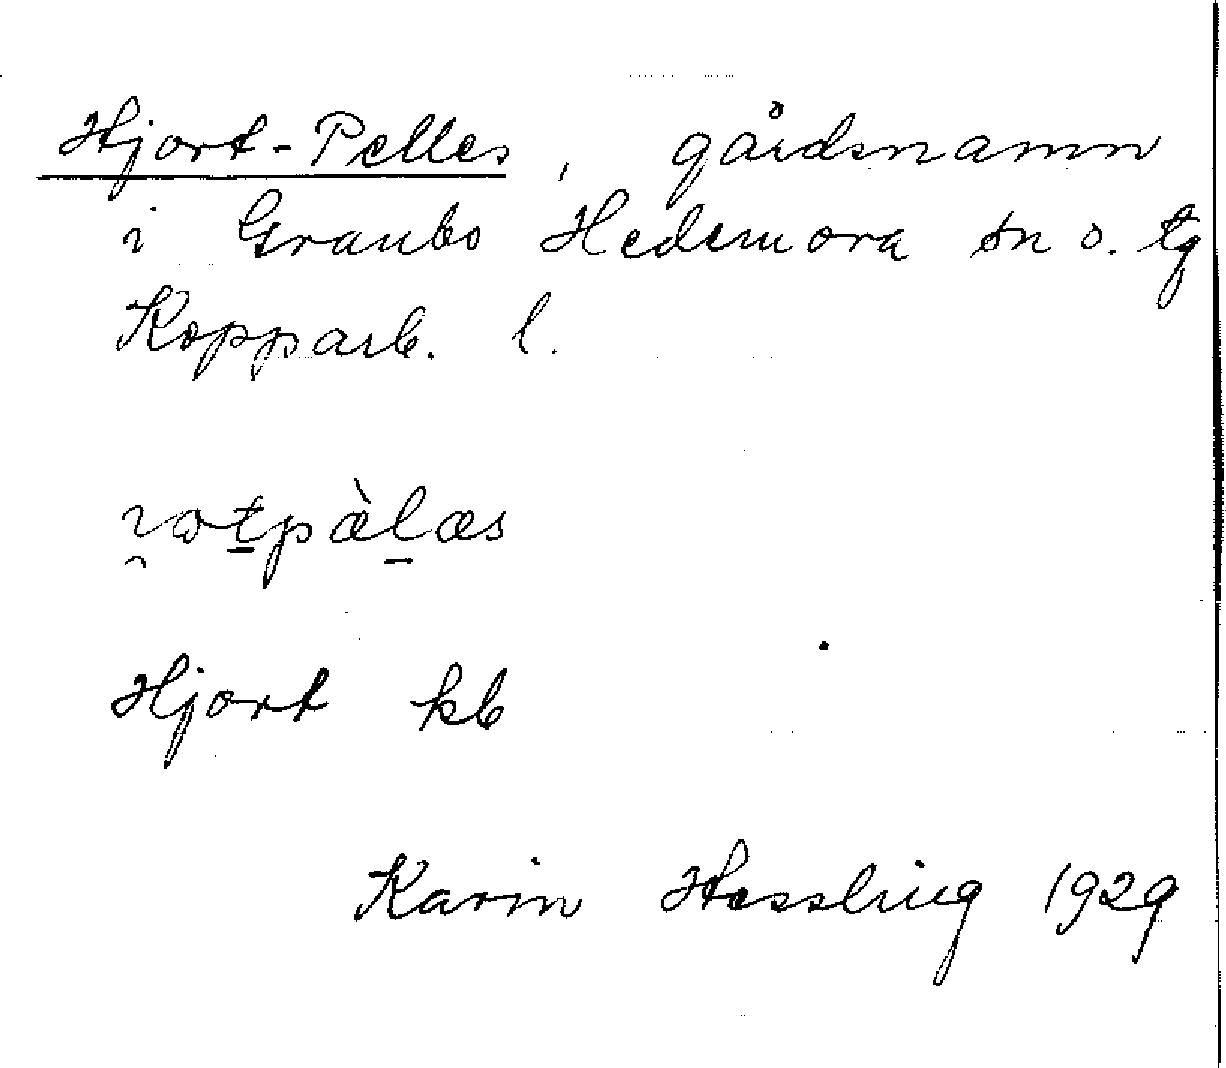 Hjort-Pelles, gårdsnamn
i Granbo Hedemora sn o. tg
Kopparb. l.
Hjort kb
Karin Hessling 1929